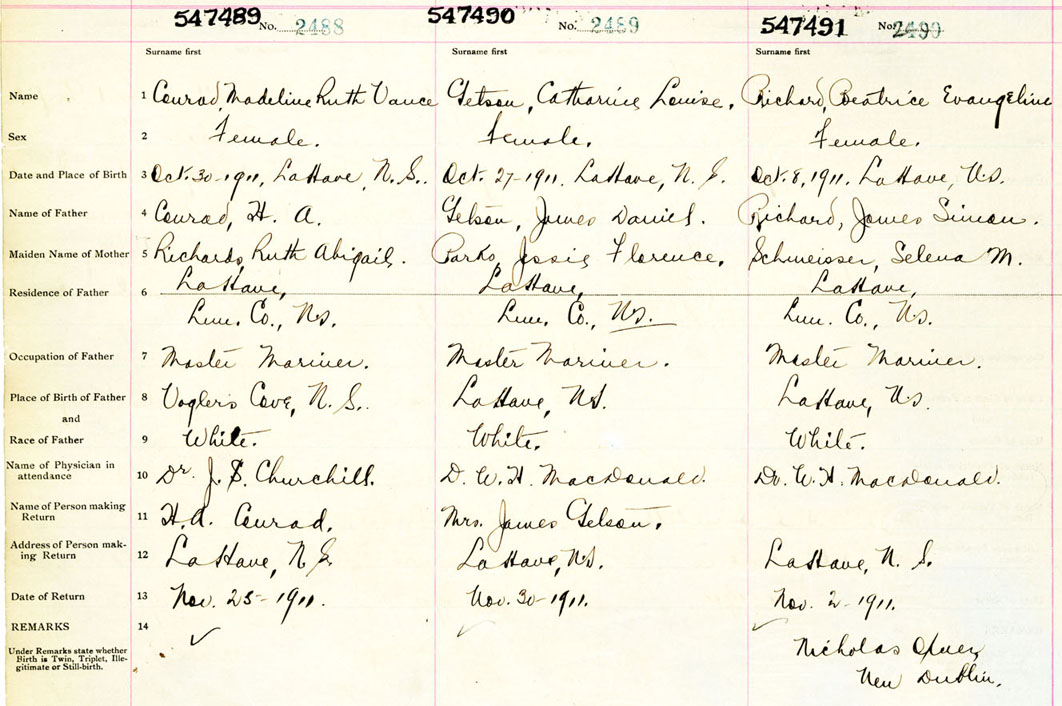 547489 No. 2488 547490 No. 2489 547491 No. 2490
Surname first Surname first Surname first
Name 1 Conrad, Madeline Ruth Vance Getson, Catharine Louise. Richard, Beatrice Evangeline
Sex 2 Female. Female. Female.
Date and Place of Birth 3 Oct. 30-1911, LaHave, N.S.. Oct. 27-1911. LaHave, N.S. Oct. 8, 1911. LaHave, N.S.
Name of Father 4 Conrad, H. A. Getson, James Daniel. Richard, James Simon.
Maiden Name of Mother 5 Richards, Ruth Abigail. Parks, Jessie Florence. Schmeisser, Selena M.
LaHave, LaHave, LaHave,
Residence of Father 6
Lun. Co., N.S. Lun. Co., N.S. Lun. Co., N.S.
Occupation of Father 7 Master Mariner. Master Mariner. Master Mariner.
Place of Birth of Father 8 Voglers Cove, N.S.. LaHave, N.S. LaHave, N.S.
and
Race of Father 9 White. White. White.
Name of Physician in
attendance 10 Dr. J. S. Churchill. D. W. H. MacDonald. Dr. W. H. MacDonald.
Name of Person making
Return 11 H. A. Conrad. Mrs. James Getson.
Address of Person mak-
ing Return 12 LaHave, N.S. LaHave, N.S. LaHave, N. S.
Date of Return 13 Nov. 25-1911. Nov. 30-1911. Nov. 2-1911.
REMARKS 14
Under Remarks state whether
Birth is Twin, Triplet, Ille-
gitimate or Still-birth.
Nicholas
New Dublin.